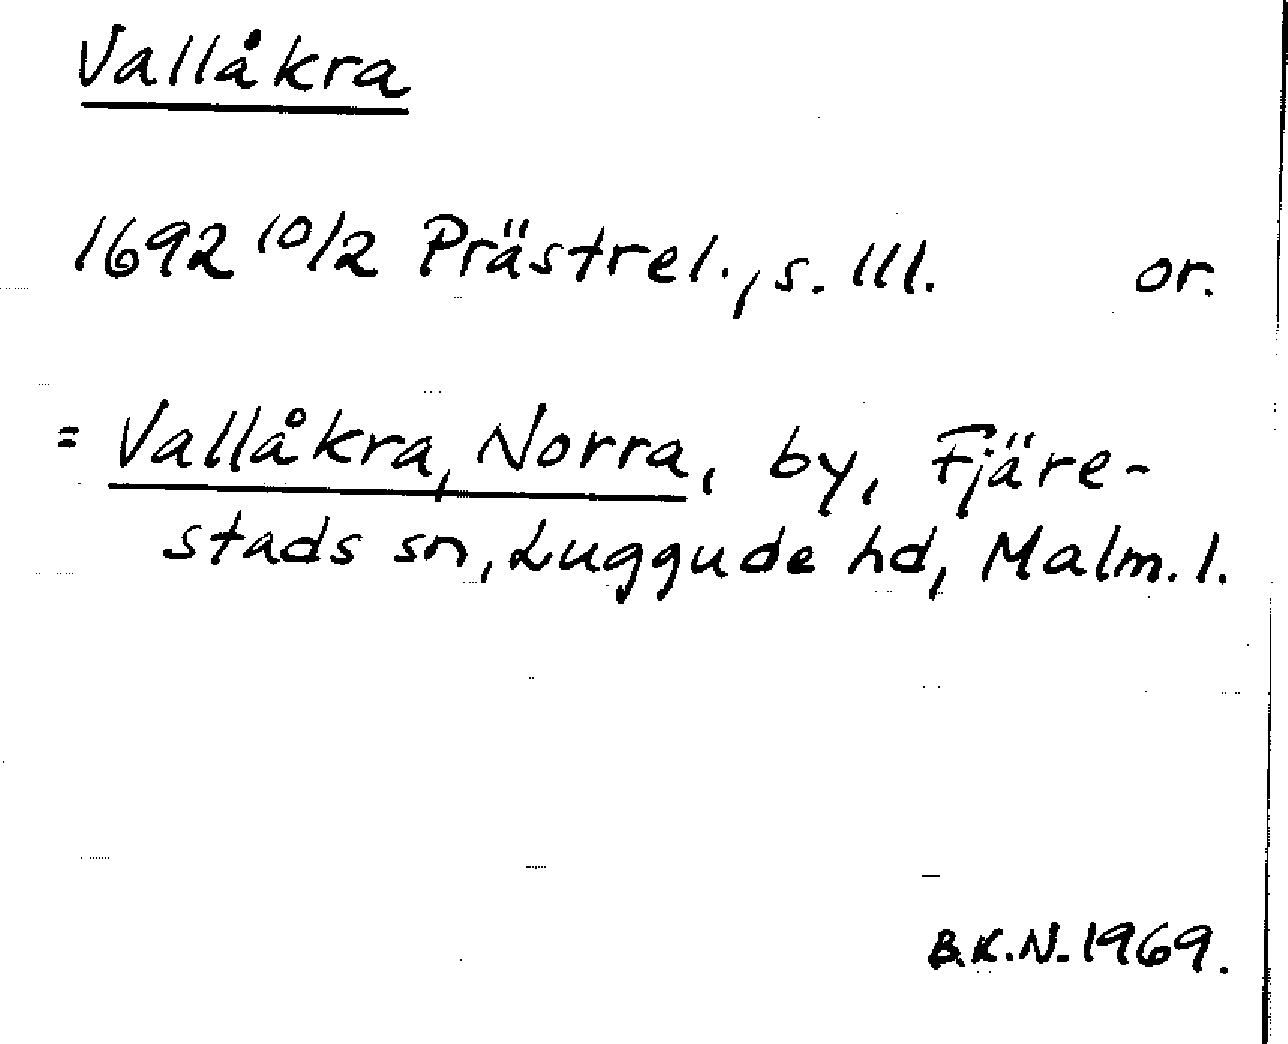 Vallåkra
1692 10/2 Prästrel., s. 111. or.
= Vallåkra, Norra, by, Fjäre-
stads sn, Luggude hd, Malm. l.
B.K.N. 1969.